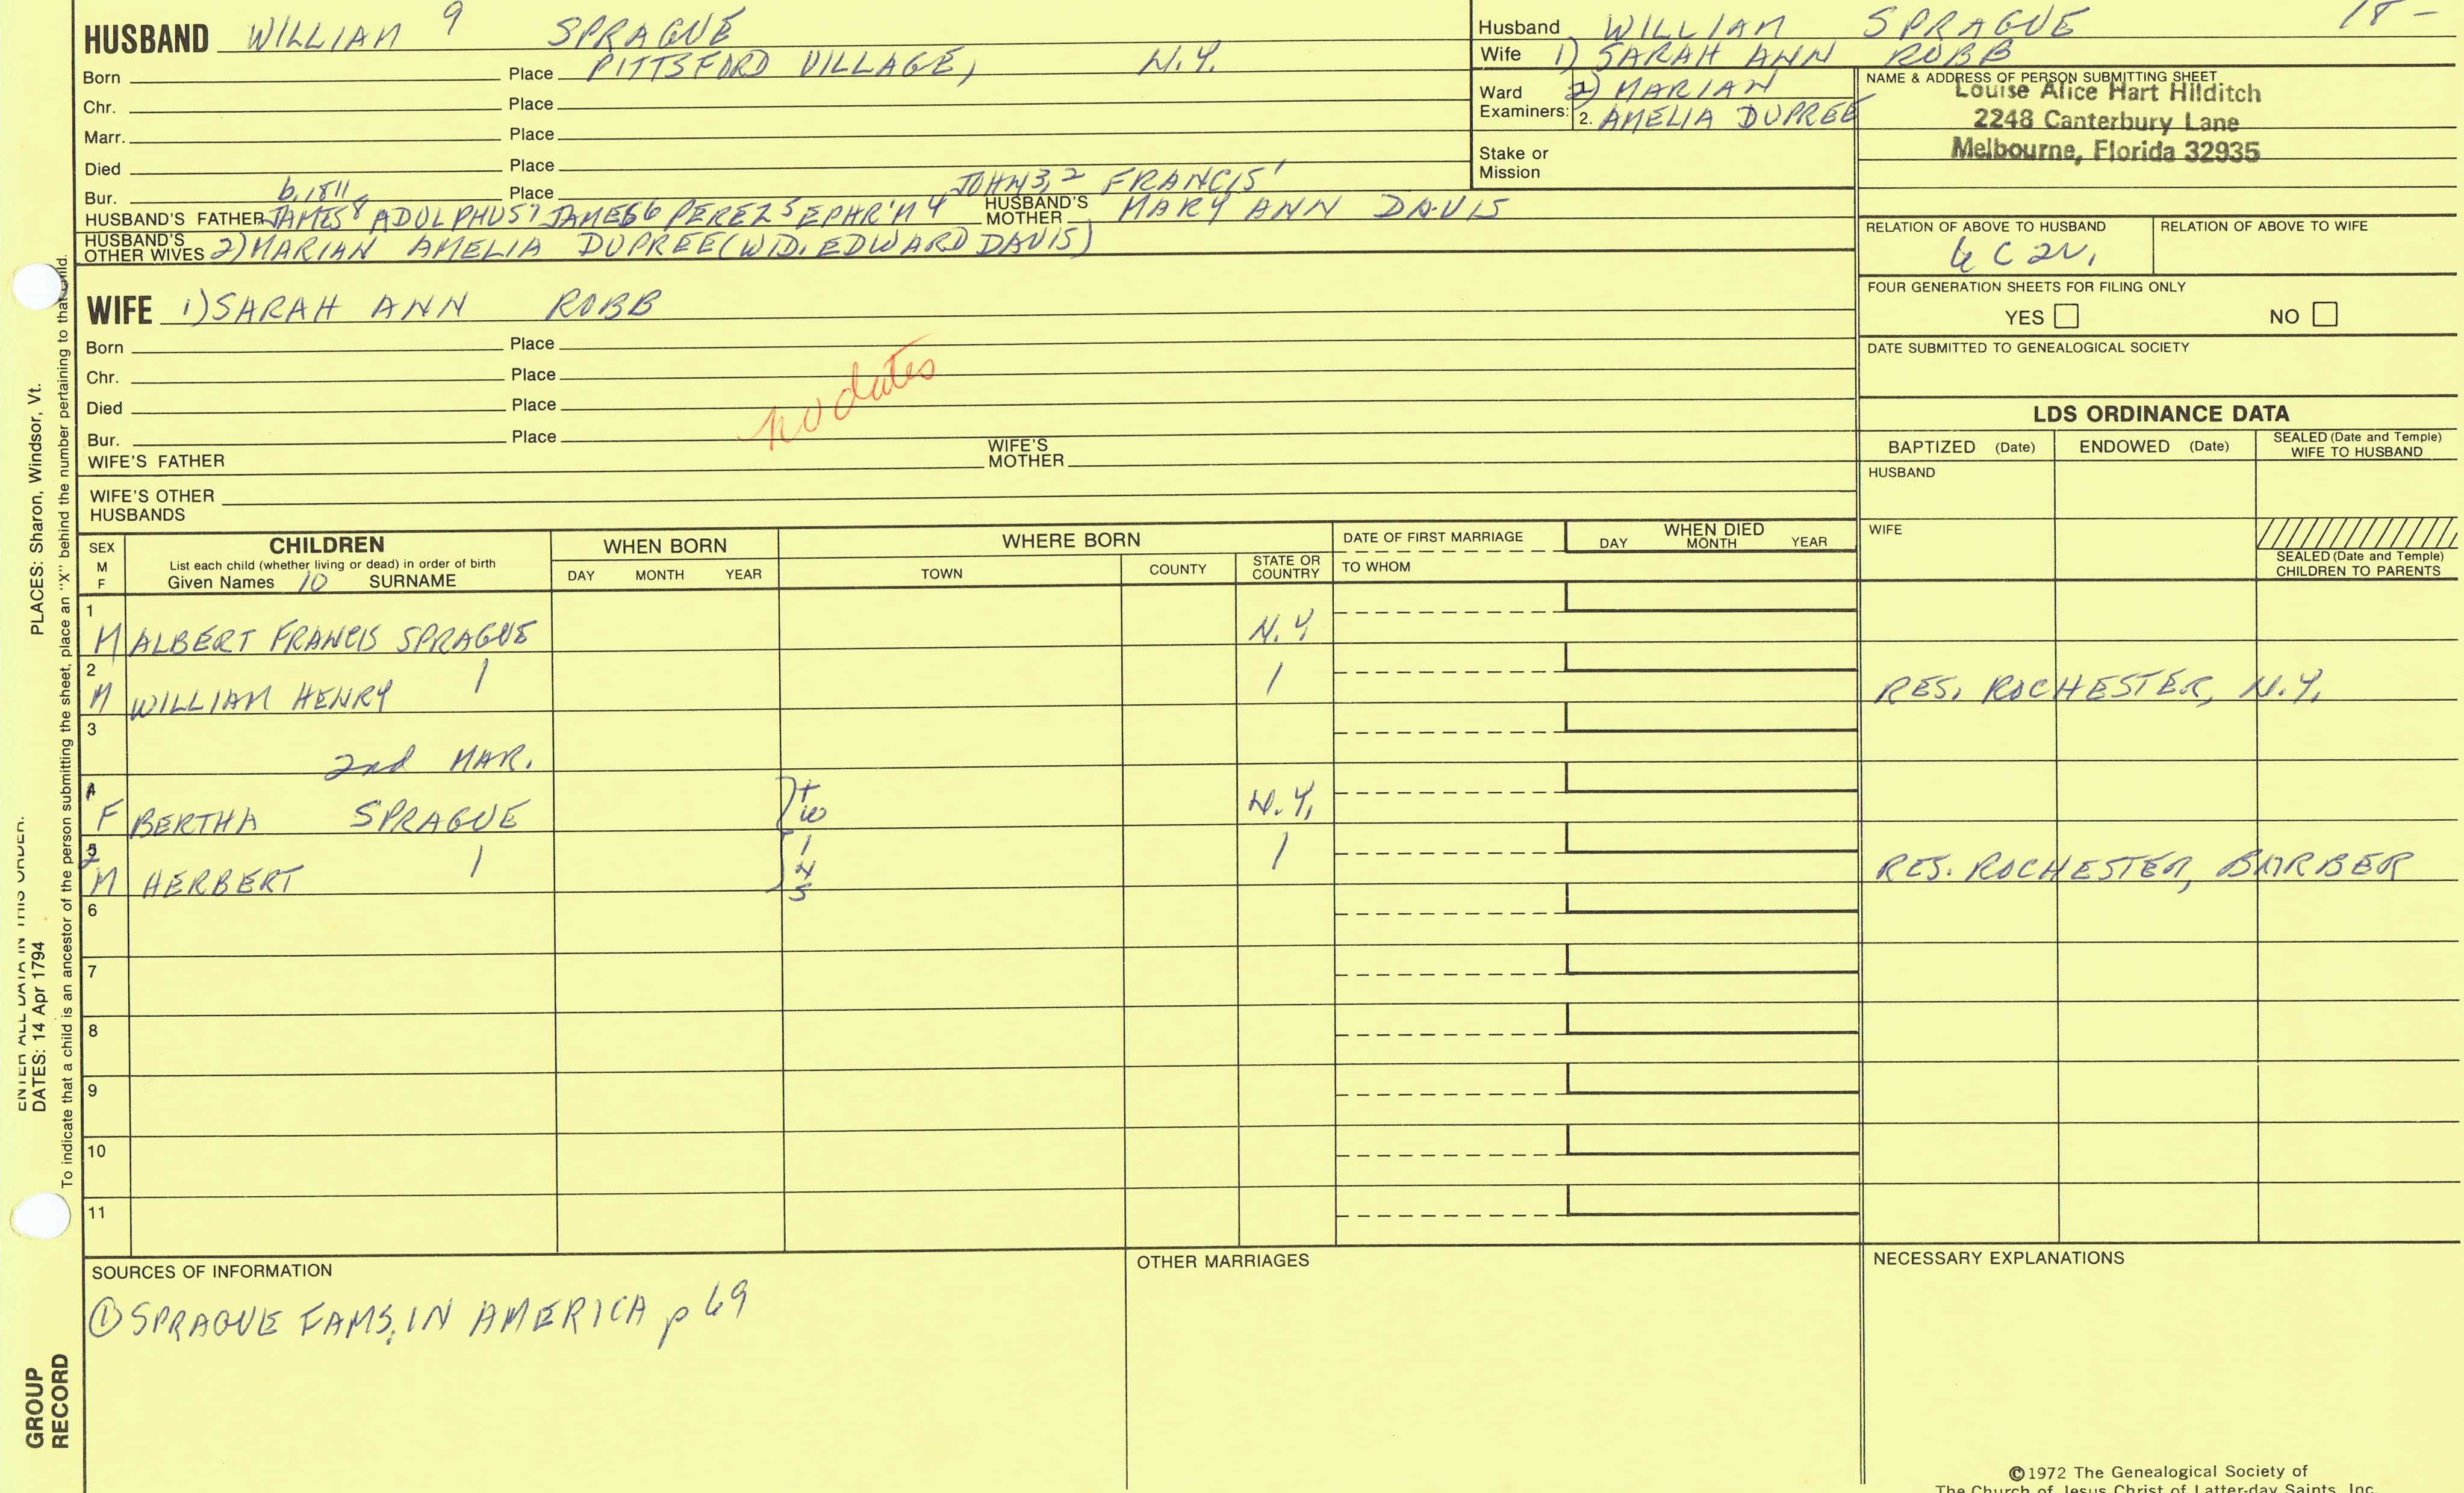 HUSBAND WILLIAM 9 SPRAGUE
Born Place PITTSFORD VILLAGE, N.Y.
Chr. Place
Marr. Place
Died Place
JOHN3,2 FRANCIS1
Bur. b.1811 Place
HUSBAND'S FATHER JAMES8 ADOLPHUS7 JAMES6 PEREZ5 EPHR'M4 HUSBAND'S MOTHER MARY ANN DAVIS
HUSBAND'S OTHER WIVES 2) MARIAN AMELIA DUPREE (WID. EDWARD DAVIS)
Husband WILLIAM SPRAGUE 18-
Wife 1) SARAH ANN ROBB
Ward Examiners: 2) MARIAN
2. AMELIA DUPREE
Stake or Mission
NAME & ADDRESS OF PERSON SUBMITTING SHEET
Louise Alice Hart Hilditch
2248 Canterbury Lane
Melbourne, Florida 32935
RELATION OF ABOVE TO HUSBAND RELATION OF ABOVE TO WIFE
6 C 2r.
FOUR GENERATION SHEETS FOR FILING ONLY
YES NO
DATE SUBMITTED TO GENEALOGICAL SOCIETY
WIFE 1) SARAH ANN ROBB
Born Place
Chr. Place
Died Place
no dates
Bur. Place
WIFE'S FATHER WIFE'S MOTHER
WIFE'S OTHER HUSBANDS
LDS ORDINANCE DATA
BAPTIZED (Date) ENDOWED (Date) SEALED (Date and Temple) WIFE TO HUSBAND
HUSBAND
WIFE
SEALED (Date and Temple) CHILDREN TO PARENTS
SEX M F CHILDREN
List each child (whether living or dead) in order of birth
Given Names 10 SURNAME
WHEN BORN
DAY MONTH YEAR
WHERE BORN
TOWN COUNTY STATE OR COUNTRY
DATE OF FIRST MARRIAGE
TO WHOM
WHEN DIED
DAY MONTH YEAR
1
M ALBERT FRANCIS SPRAGUE N.Y.
2
M WILLIAM HENRY 1 1 RES. ROCHESTER, N.Y.
3
2nd MAR.
F BERTHA SPRAGUE tw N.Y.
M HERBERT 1 ins 1 RES. ROCHESTER, BARBER
6
7
8
9
10
11
SOURCES OF INFORMATION
① SPRAGUE FAMS. IN AMERICA p 69
OTHER MARRIAGES
NECESSARY EXPLANATIONS
©1972 The Genealogical Society of
The Church of Jesus Christ of Latter-day Saints, Inc.
ENTER ALL DATA IN THIS ORDER:
DATES: 14 Apr 1794 PLACES: Sharon, Windsor, Vt.
To indicate that a child is an ancestor of the person submitting the sheet, place an "X" behind the number pertaining to that child.
GROUP
RECORD